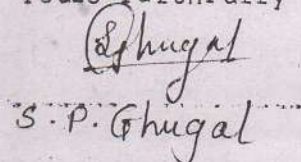 Yours faithfully
Ghugal
S. P. Ghugal